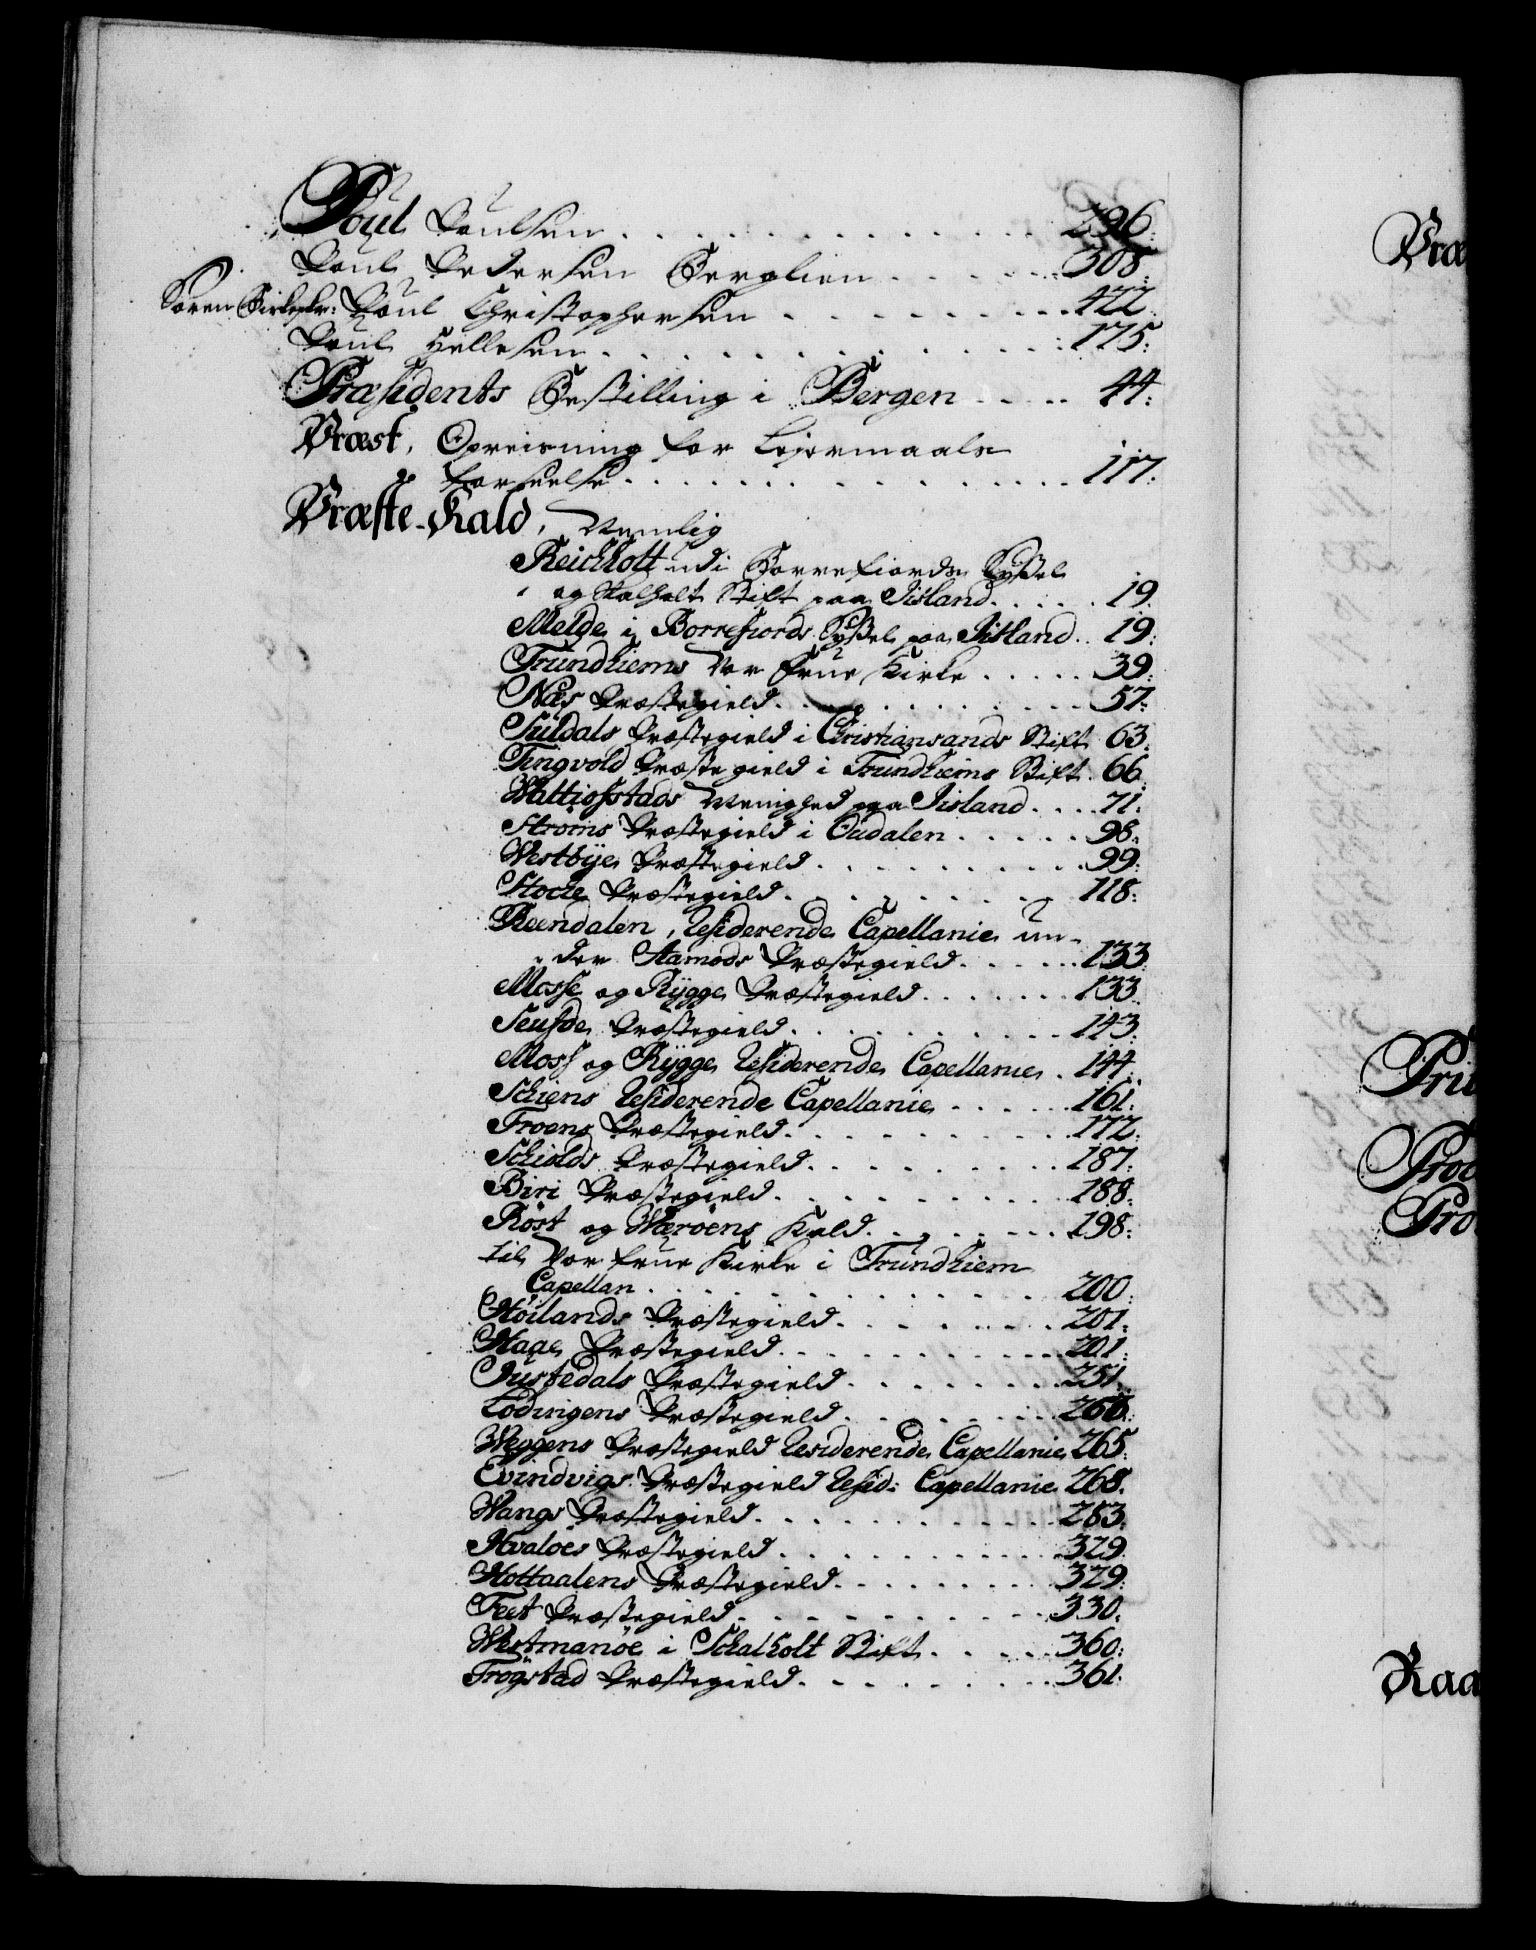 Poul Poulsen . . . . . . . . . . . . 296.
Poul Pedersen Berglien . . . . . . 308.
Søren Poul Christophersen . . . . . . . . . 422.
Poul Hellesen . . . . . . . . . . . . . 175.
Præsidents Bestilling i Bergen . . . . . 44.
Præst, Opreisning for Lejermaals
forseelse . . . . . . . . . . . . . . . . 117.
Præste-Kald, Nemlig
Reichholt udi Borrefiords Syssel
og Skalholt Stift paa Iisland . . . . . 19.
Melde i Borrefiords Syssel paa Iisland . . 19.
Trundhiems Vor Frue Kirke . . . . . 39.
Næs Præstegield . . . . . . . . . . 57.
Suldals Præstegield i Christiansands Stift 63.
Tingvold Præstegield i Trundhiems Stift . 66.
Waltiofstads Menighed paa Iisland . . . . 71.
Strøms Præstegield i Oudalen . . . . . 98.
Westbye Præstegield . . . . . . . . . . 99.
Stocke Præstegield . . . . . . . . . . 118.
Reendalen, Residerende Capellanie un-
der Aamods Præstegield . . . . . . 133.
Mosse og Rygge Præstegield . . . . . . . 133.
Seufde Præstegield . . . . . . . . . . 143.
Moss og Rygge Residerende Capellanie . 144.
Schiens Residerende Capellanie . . . . . . 161.
Froens Præstegield . . . . . . . . . . . 172.
Schiolds Præstegield . . . . . . . . . 187.
Biri Præstegield . . . . . . . . . . . 188.
Röst og Weröens Kald . . . . . . . . 198.
til Vor Frue Kirke i Trundhiem
Capellan . . . . . . . . . . . . . . . 200.
Höilands Præstegield . . . . . . . . . 201.
Wage Præstegield . . . . . . . . . . . 201.
Justedals Præstegield . . . . . . . . 251.
Lödingens Præstegield . . . . . . . . 266.
Weggens Præstegield Residerende Capellanie 265.
Evindvigs Præstegield Resid: Capellanie 268.
Wangs Præstegield . . . . . . . . . . . 283.
Hvalöes Præstegield . . . . . . . . . . 329.
Holtaalens Præstegield . . . . . . . . . 329.
Feet Præstegield . . . . . . . . . . . 330.
Westmanöe i Schalholt Stift . . . . . 360.
Trögstad Præstegield . . . . . . . . . 361.
Præ
Pri
Pro
Pro
Raa